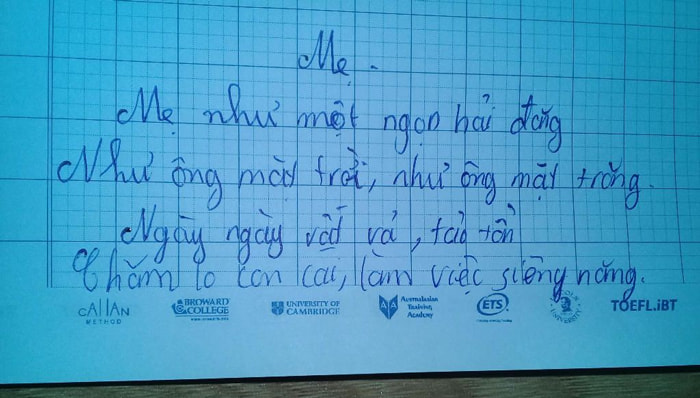 Mẹ.
Mẹ như một ngọn hải đăng
Như ông mặt trời, như ông mặt trăng.
Ngày ngày vất vả, tảo tần
Chăm lo con cái, làm việc siêng năng.
CAllAN METHOD
BROWARD COLLEGE
UNIVERSITY OF CAMBRIDGE
Australasian Training Academy
ETS
UNIVERSITY
TOEFL.iBT